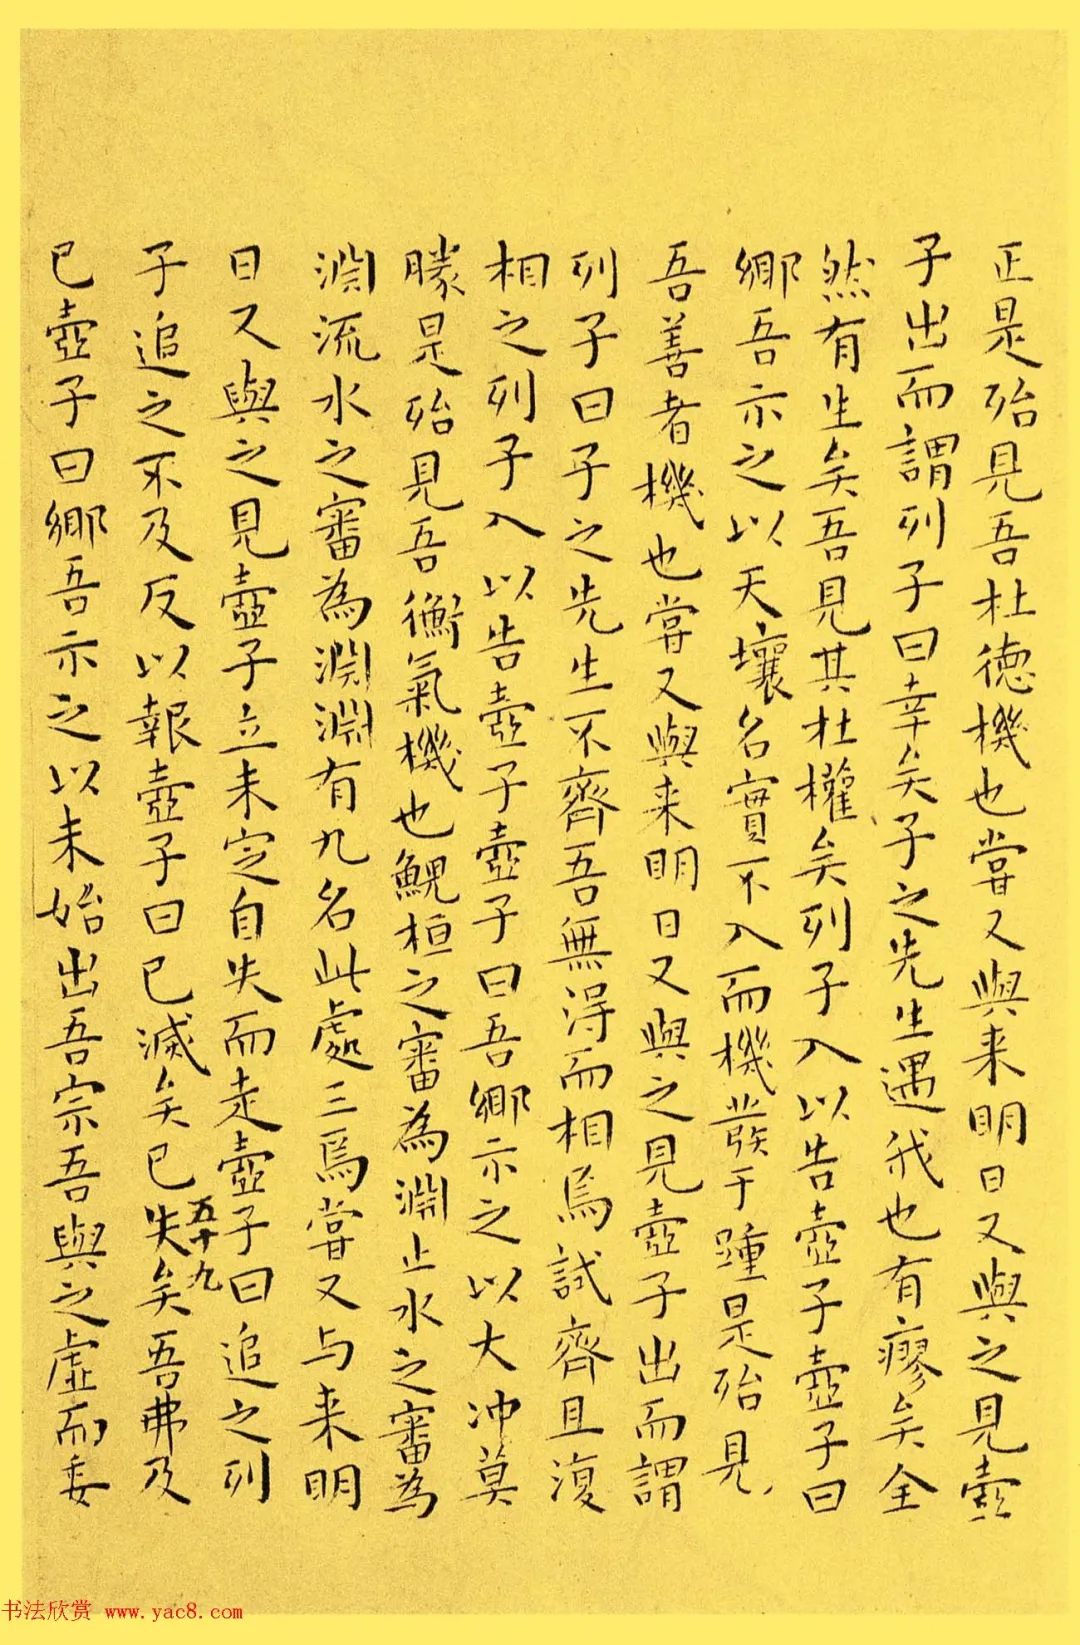 正是殆見吾杜徳機也嘗又與来明日又與之見壺
子出而謂列子曰幸矣子之先生遇我也有瘳矣全
然有生矣吾見其杜權矣列子入以告壺子壺子曰
鄉吾示之以天壤名實不入而機發于踵是殆見
吾善者機也嘗又與来明日又與之見壺子出而謂
列子曰子之先生不齊吾無得而相焉試齊且復
相之列子入以告壺子壺子曰吾鄉示之以大冲莫
朕是殆見吾衡氣機也鯢桓之審為淵止水之審為
淵流水之審為淵淵有九名此處三焉嘗又与来明
日又與之見壺子立未定自失而走壺子曰追之列
子追之不及反以報壺子曰已滅矣已失矣吾弗及
五十九
已壺子曰鄉吾示之以未始出吾宗吾與之虛而委
书法欣赏 www.yac8.com